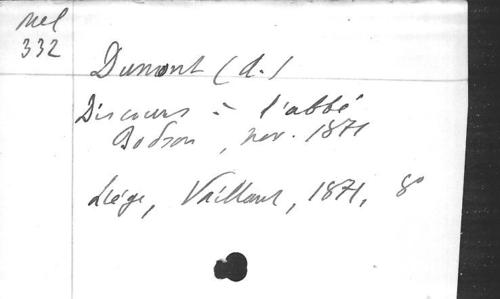 Mel
332
Dumont (d.)
Discours à l'abbé
Bodson, nov. 1871
Liège, Vaillant, 1871, 8°